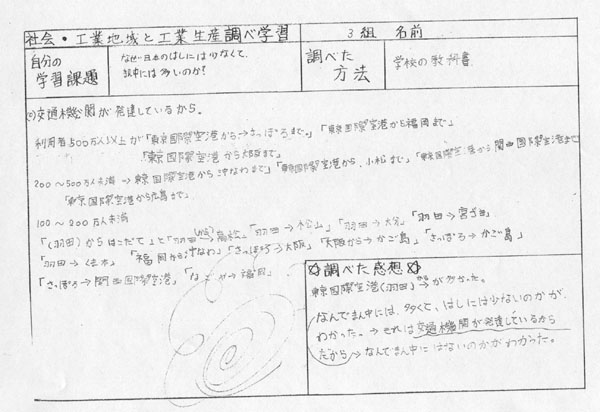 社会・工業地域と工業生産調べ学習 3組 名前
自分の学習課題
なぜ日本のはしには少なくて、
まん中には多いのか?
調べた方法
学校の教科書
交通機関が発達しているから。
利用者500万人以上が「東京国際空港から→さっぽろまで。」「東京国際空港から福岡まで」
「東京国際空港から大阪まで」
200〜500万人未満→東京国際空港から沖なわまで」「東京国際空港から、小松まで」「東京国際空港から関西国際空港まで」
「東京国際空港から広島まで」
100〜200万人未満
「(羽田)からはこだて」と「羽田から高松」「羽田→松山」「羽田→大分」「羽田→宮ざき」
「羽田→くま本」「福岡から沖なわ」「さっぽろ→大阪」「大阪からかご島」「さっぽろ→かご島」
「さっぽろ→関西国際空港」「なごや→福岡」
調べた感想
東京国際空港(羽田)からが多かった。
なんでまん中には、多くて、はしには少ないのかが、
わかった。→それは交通機関が発達しているから
だから→なんでまん中にはないのかがわかった。